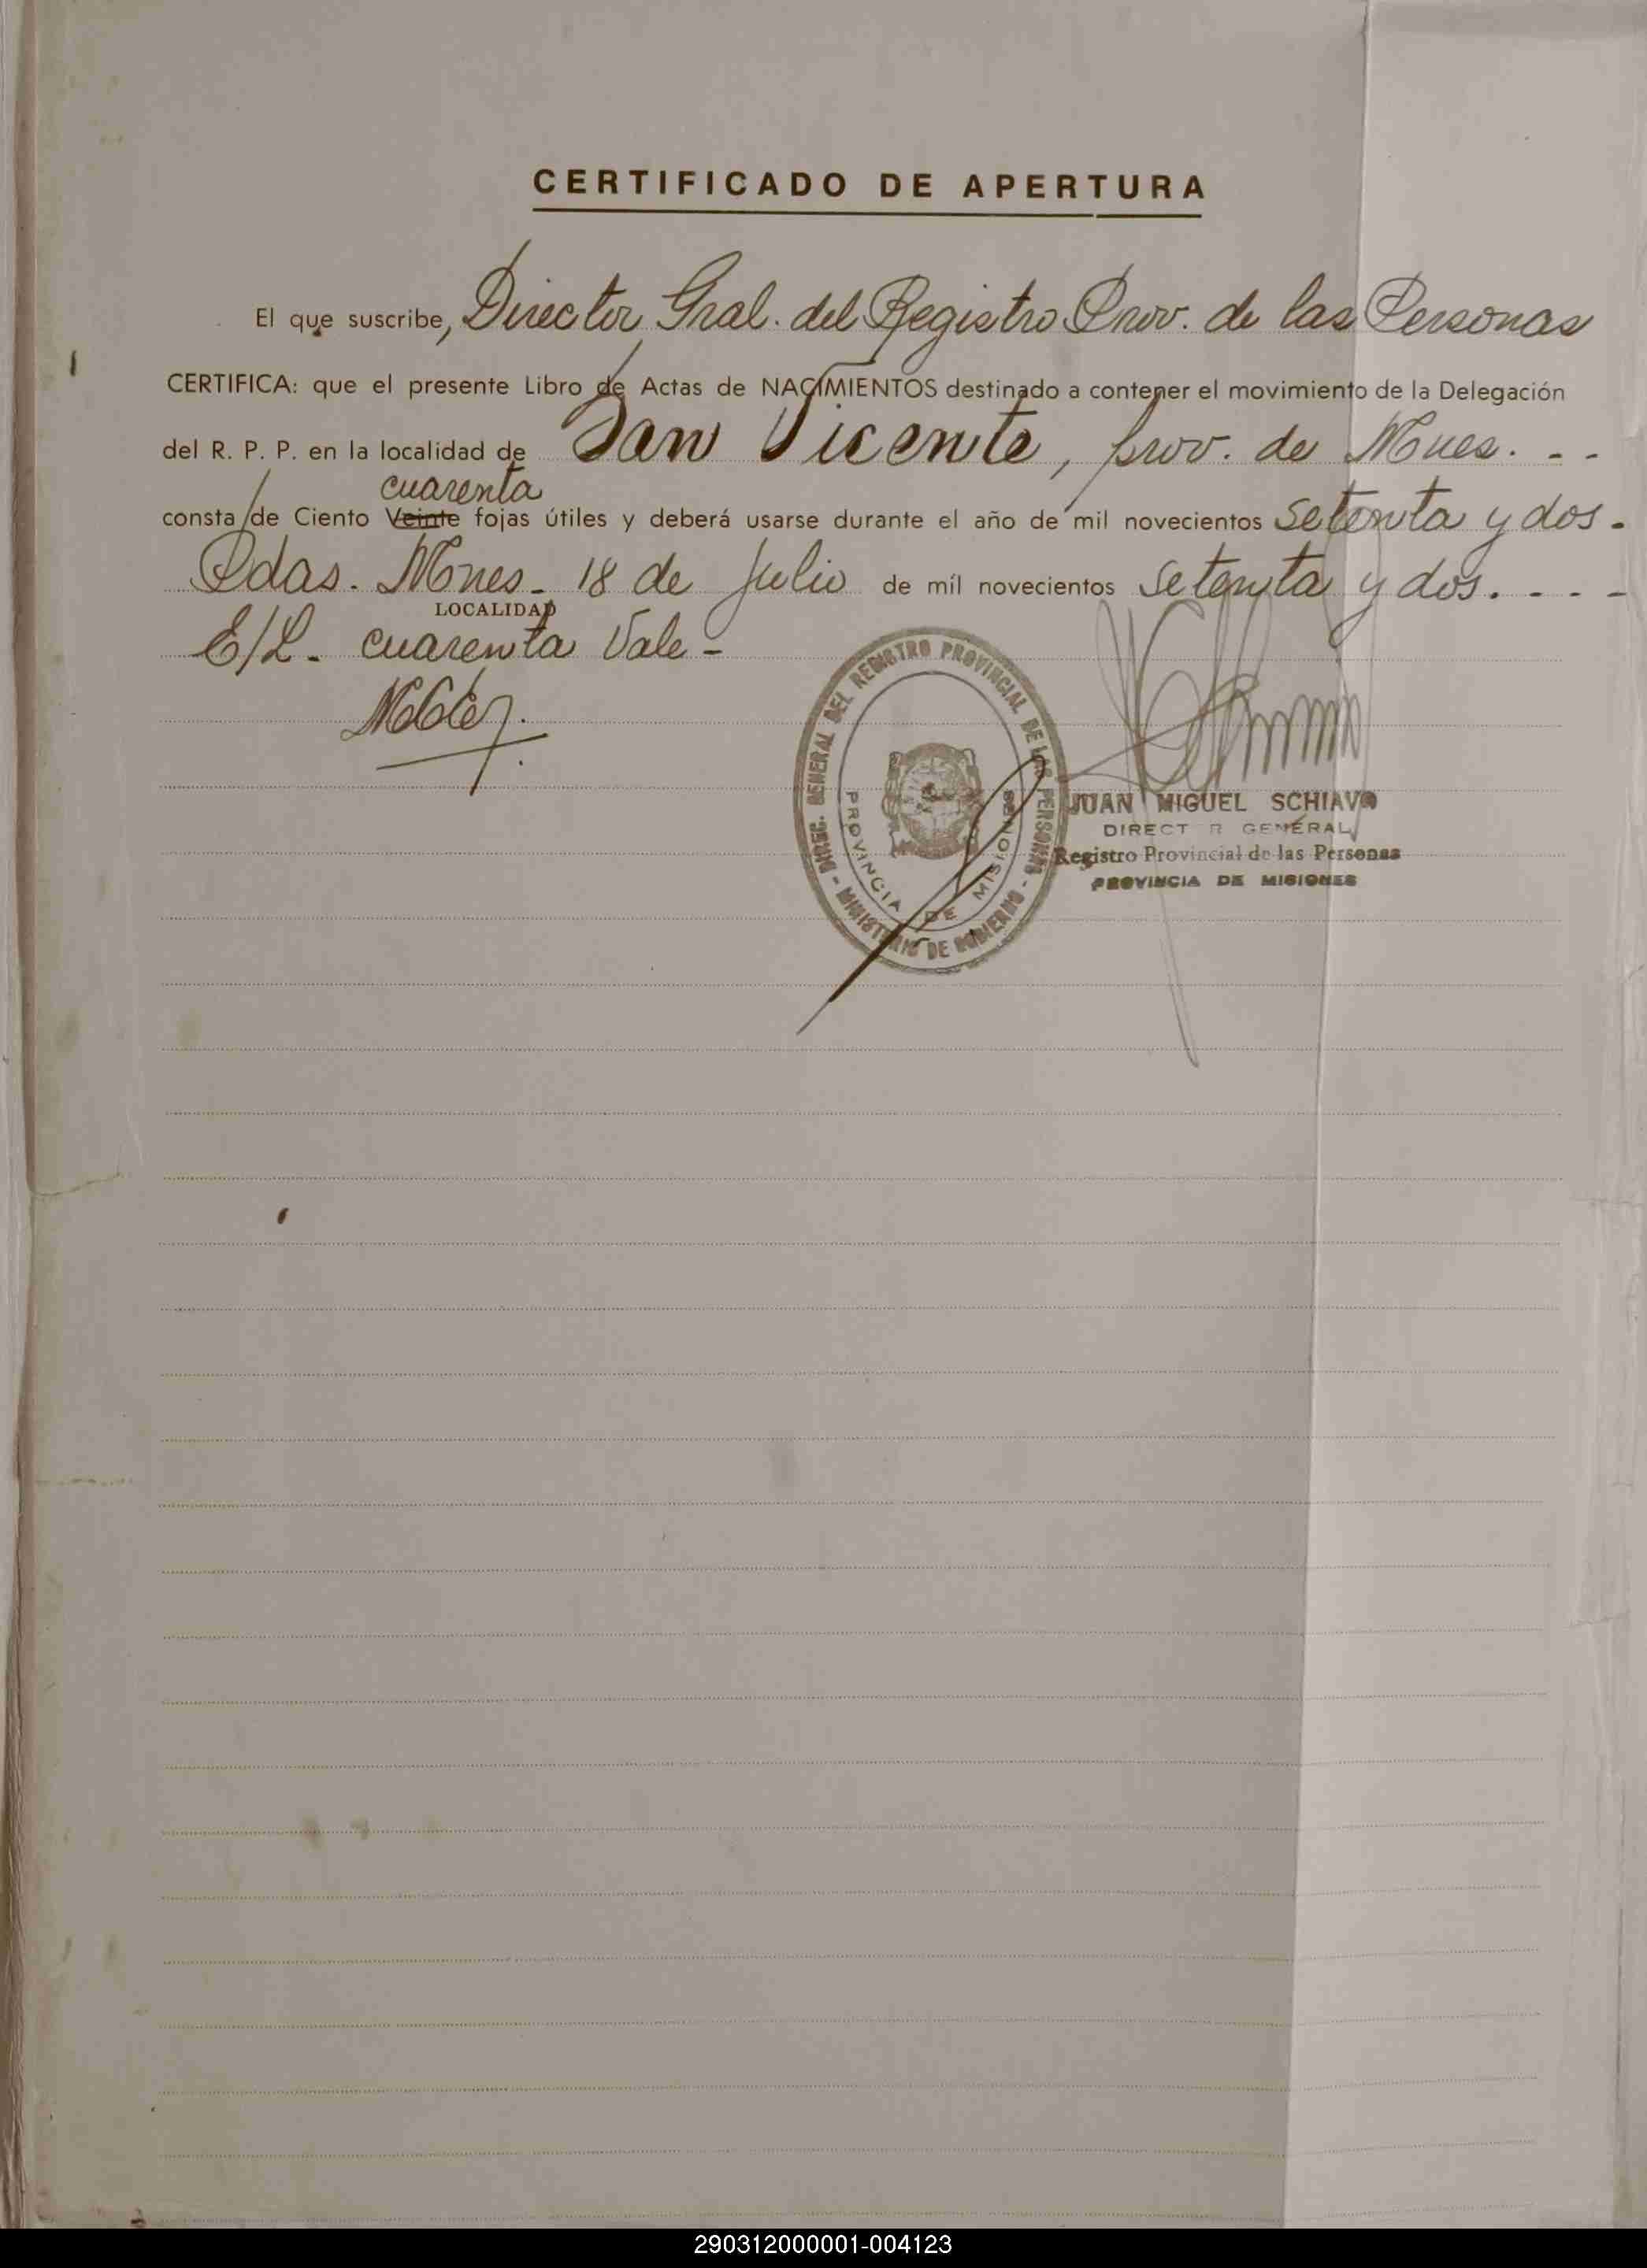 CERTIFICADO DE APERTURA
El que suscribe, Director Gral. del Registro Prov. de las Personas
CERTIFICA: que el presente Libro de Actas de NACIMIENTOS destinado a contener el movimiento de la Delegación
del R. P. P. en la localidad de San Vicente, prov. de Mnes. - -
cuarenta
consta de Ciento Veinte fojas útiles y deberá usarse durante el año de mil novecientos setenta y dos.
Pdas. Mnes. 18 de Julio de mil novecientos setenta y dos. - - -
LOCALIDAD
E/L. cuarenta Vale -
DIREC. GENERAL DEL REGISTRO PROVINCIAL DE LAS PERSONAS - MINISTERIO DE GOBIERNO -
PROVINCIA DE MISIONES
JUAN MIGUEL SCHIAVO
DIRECT R GENERAL
Registro Provincial de las Personas
PROVINCIA DE MISIONES
290312000001-004123